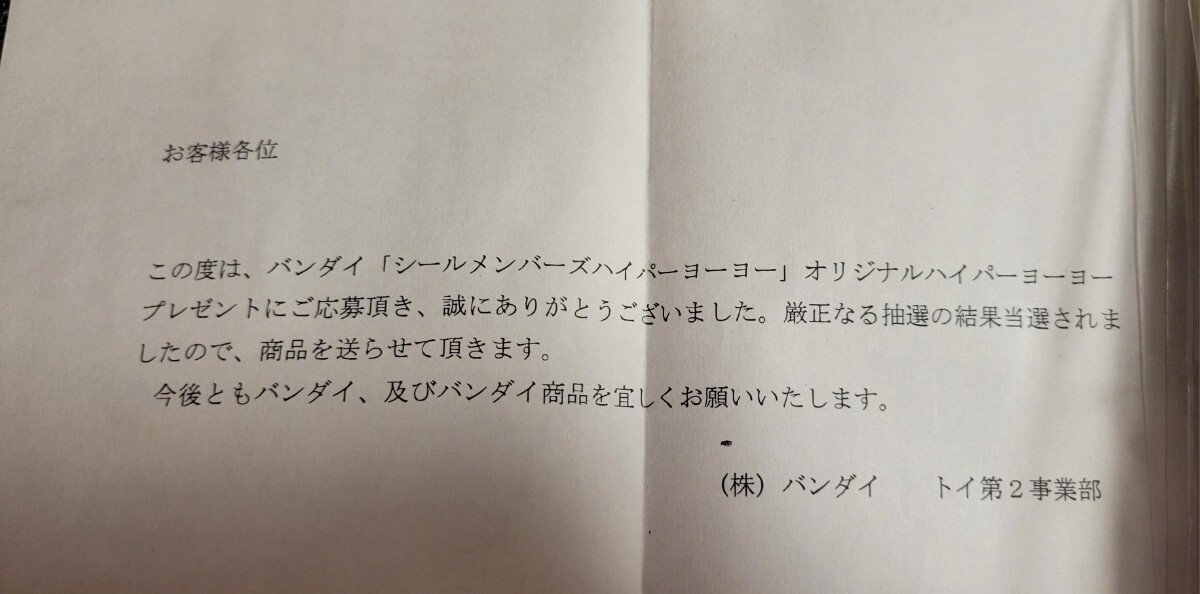 お客様各位
この度は、バンダイ「シールメンバーズハイパーヨーヨー」オリジナルハイパーヨーヨー
プレゼントにご応募頂き、誠にありがとうございました。厳正なる抽選の結果当選されま
したので、商品を送らせて頂きます。
今後ともバンダイ、及びバンダイ商品を宜しくお願いいたします。
(株)バンダイ　トイ第2事業部